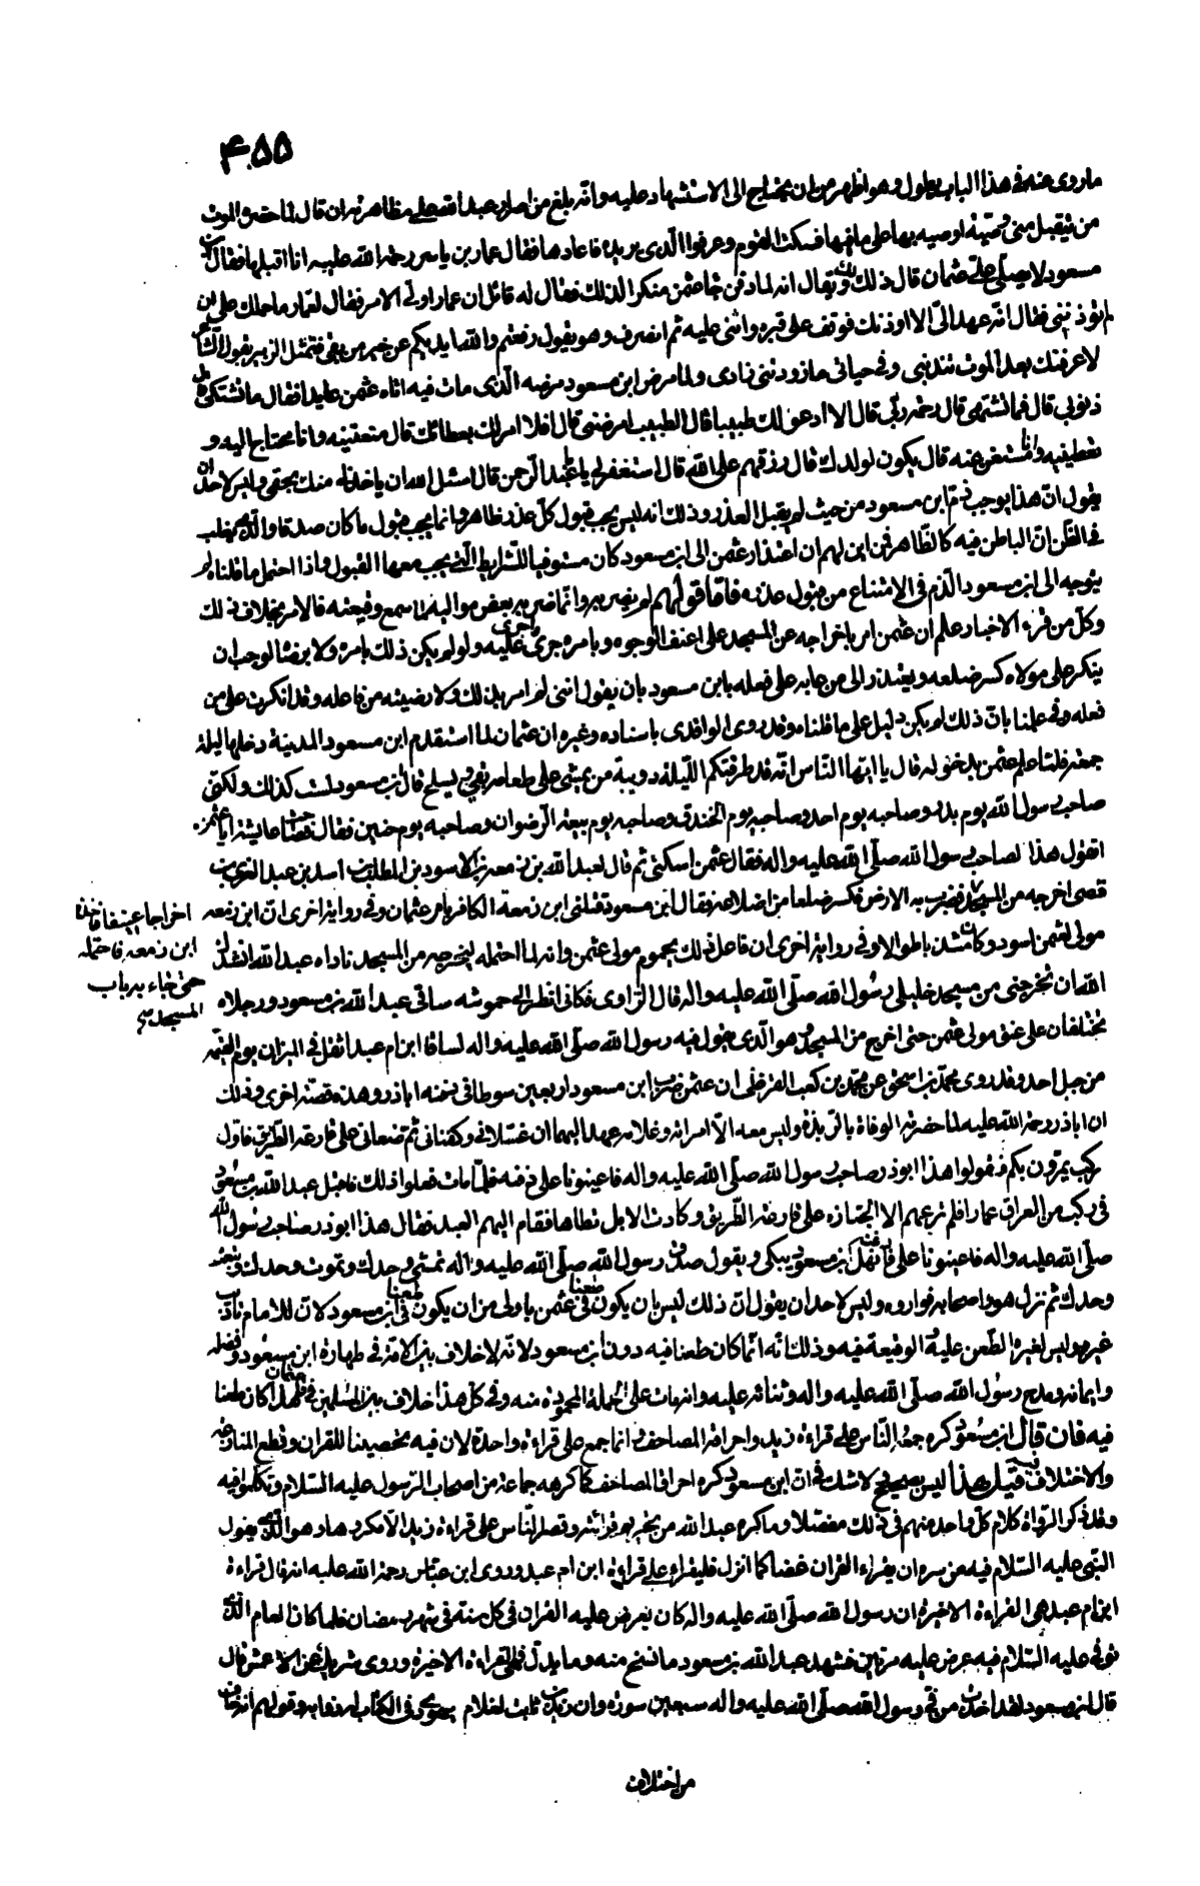 ۴۵۵
ما روى عنه فى هذا الباب يطول وهو اظهر من ان يحتاج الى الاستشهاد عليه وانه بلغ من اصرار عبد الله على مظاهرته ان قال لما حضره الموت
من يتقبل منى وصية اوصيه بها على ما فيها فسكت القوم وعرفوا الذى يريده فاعادها فقال عمار بن ياسر رحمة الله عليه انا اقبلها فقال ابن
مسعود لا يصلى على عثمان قال ذلك لك ويقال انه لما دفن جاء عثمن منكرا لذلك فقال له قائل ان عمارا ولى الامر فقال لعمار ما حملك على ان
لم تؤذننى فقال انه عهد الى الا اوذنك فوقف على قبره واثنى عليه ثم انصرف وهو يقول رفعتم والله ايديكم عن خير من بقى فتمثل الزبير بقول الشاعر
لا عرفنك بعد الموت تندبنى وفى حياتى ما زودتنى زادى ولما مرض ابن مسعود مرضه الذى مات فيه اتاه عثمن عايدا فقال ما تشتكى قال
ذنوبى قال فما تشتهى قال رحمة ربى قال الا ادعو لك طبيبا قال الطبيب امرضنى قال افلا امر لك بعطائك قال منعتنيه وانا محتاج اليه و
تعطينيه وانا مستغن عنه قال يكون لولدك قال رزقهم على الله قال استغفر لى يا ابا عبد الرحمن قال اسئل الله ان ياخذ لى منك بحقى وليس لاحد ان
يقول ان هذا يوجب ذم ابن مسعود من حيث لم يقبل العذر وذلك انه ليس يجب قبول كل عذر ظاهر وانما يجب قبول ما كان صدقا والذى يغلب
فى الظن ان الباطن فيه كالظاهر فمن اين لهم ان اعتذار عثمن الى ابن مسعود كان مستوفيا للشرايط التى يجب معها القبول واذا احتمل ما قلناه لم
يتوجه الى ابن مسعود الذم فى الامتناع من قبول عذره فاما قولهم لم يضربه وانما ضربه بعض مواليه لما سمع وقيعته فالامر بخلاف ذلك
وكل من قرء الاخبار علم ان عثمن امر باخراجه عن المسجد على اعنف الوجوه وبامره جرى ما جرى عليه ولو لم يكن ذلك بامره ولا برضاه لوجب ان
ينكر على مولاه كسر ضلعه ويعتذر الى من عابه على فعله بابن مسعود بان يقول اننى لم امر بذلك ولا رضيته من فاعله وقد انكرت على من
فعله وفى علمنا بان ذلك لم يكن دليل على ما قلناه وقد روى الواقدى باسناده وغيره ان عثمان لما استقدم ابن مسعود المدينة دخلها ليلة
جمعة فلما علم عثمن بدخوله قال يا ايها الناس انه قد طرقتكم الليلة دويبة من يمشى على طعامه يقئ ويسلح قال ابن مسعود لست كذلك ولكنى
صاحب رسول الله يوم بدر وصاحبه يوم احد وصاحبه يوم الخندق وصاحبه يوم بيعة الرضوان وصاحبه يوم حنين فقال فصاحت عايشة ايا عثمن
اتقول هذا لصاحب رسول الله صلى الله عليه واله فقال عثمن اسكتى ثم قال لعبد الله بن زمعة بن الاسود بن المطلب بن اسد بن عبد العزى بن
قصى اخرجه من المسجد فضرب به الارض فكسر ضلعا من اضلاعه فقال ابن مسعود قتلنى ابن زمعة الكافر بامر عثمان وفى رواية اخرى ان ابن زمعه
مولى لعثمن اسود وكان مشد باطوالا وفى رواية اخرى ان فاعل ذلك يحموم مولى عثمن وانه لما احتمله ليخرجه من المسجد ناداه عبد الله انشدك
الله ان تخرجنى من مسجد خليلى رسول الله صلى الله عليه واله قال الراوى فكانى انظر الى حموشه ساقى عبد الله بن مسعود ورجلاه
تختلفان على عنق مولى عثمن حتى اخرج من المسجد وهو الذى يقول فيه رسول الله صلى الله عليه واله لساقا ابن ام عبد اثقل فى الميزان يوم القيمه
من جبل احد وقد روى محمد بن اسحق عن محمد بن كعب القرظى ان عثمن ضرب ابن مسعود اربعين سوطا فى دفنه اباذر وهذه قصة اخرى وذلك
ان اباذر رحمة الله عليه لما حضرته الوفاة بالربذة وليس معه الا امراته وغلامه عهد اليهما ان غسلانى وكفنانى ثم ضعانى على قارعة الطريق فاول
ركب يمرون بكم فقولوا هذا ابوذر صاحب رسول الله صلى الله عليه واله فاعينونا على دفنه فلما مات فعلوا ذلك فاقبل عبد الله بن مسعود
فى ركب من العراق عمارا فلم ترعهم الا الجنازه على قارعة الطريق وكادت الابل تطاها فقام اليهم العبد فقال هذا ابوذر صاحب رسول الله
صلى الله عليه واله فاعينونا على دفنه فانهل ابن مسعود يبكى ويقول صدق رسول الله صلى الله عليه واله تمشى وحدك وتموت وحدك وتبعث
وحدك ثم نزل هو واصحابه فواروه وليس لاحد ان يقول ان ذلك ليس بان يكون طعنا فى عثمن باولى من ان يكون طعنا فى ابن مسعود لان للامام تاديب
غيره وليس لغيره الطعن عليه الوقيعة فيه وذلك انه انما كان طعنا فيه دون ابن مسعود لانه لا خلاف بين الامة فى طهارة ابن مسعود وفضله
وايمانه ومدح رسول الله صلى الله عليه واله وثنائه عليه وانه مات على الجملة المحمودة منه وفى كل هذا خلاف بين المسلمين فى عثمان فلهذا كان طعنا
فيه فان قال ابن مسعود كره جمع الناس على قراءة زيد واحراقه المصاحف وانما جمع على قراءة واحدة لان فيه تحصينا للقران وقطع المنازعة
والاختلاف فيه قيل هذا ليس بصحيح لا شك فى ان ابن مسعود كره احراق المصاحف كما كرهه جماعة من اصحاب الرسول عليه السلام وتكلموا فيه
وقد ذكر الرواة كلام كل واحد منهم فى ذلك مفصلا وما كره عبد الله من تحريم قرائته وقصر الناس على قراءة زيد الا مكروها وهو الذى يقول
النبى عليه السلام فيه من سره ان يقراء القران غضا كما انزل فليقراء على قراءة ابن ام عبد وروى ابن عباس رحمة الله عليه انه قال قراءة
ابن ام عبد هى القراءة الاخيرة ان رسول الله صلى الله عليه واله كان يعرض عليه القران فى كل سنة فى شهر رمضان فلما كان العام الذى
توفى عليه السلام فيه عرض عليه مرتين فشهد عبد الله بن مسعود ما نسخ منه وما بدل فهى القراءة الاخيرة وروى شريك عن الاعمش قال
قال ابن مسعود لقد اخذت من فى رسول الله صلى الله عليه واله سبعين سورة وان زيد بن ثابت لغلام يهودى فى الكتاب له ذؤابة وقولهم انه خاف
اخراجا عنيفا فاخذه
ابن زمعه فاحتمله
حتى جاء به باب
المسجد
من اختلاف